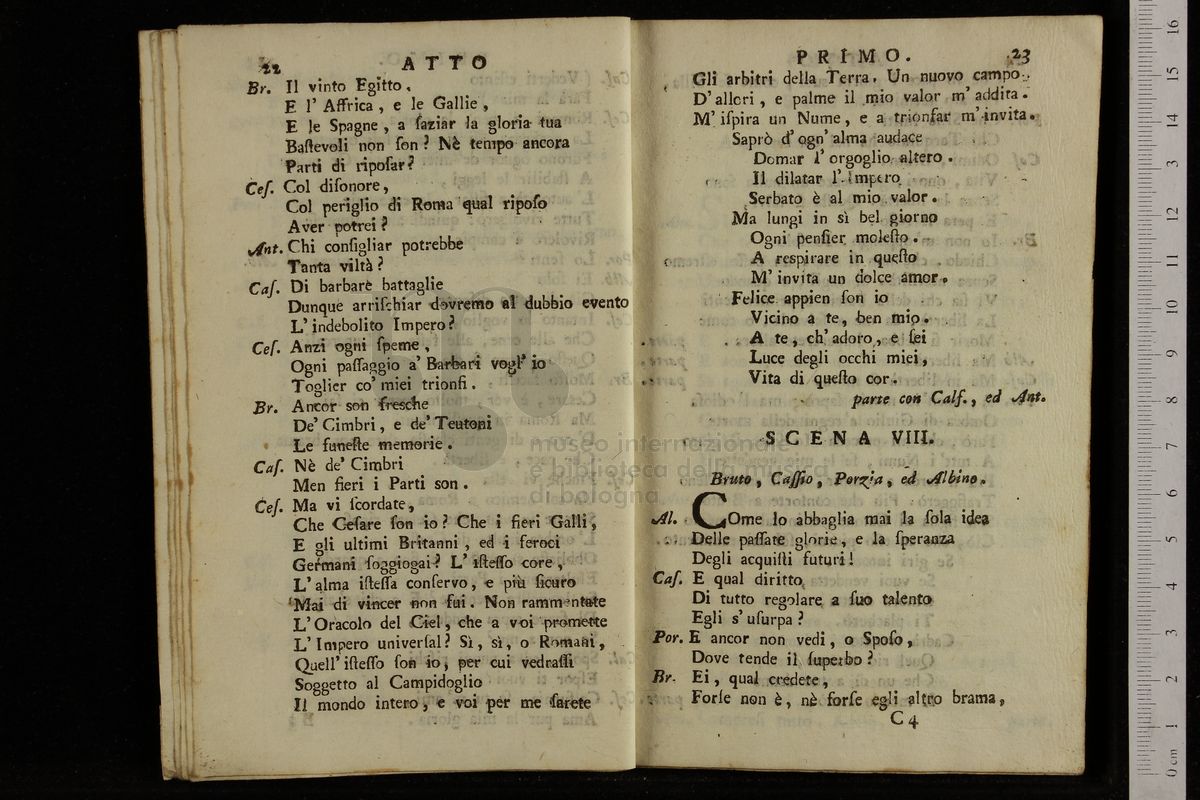 22 ATTO
Br. Il vinto Egitto,
E l' Affrica, e le Gallie,
E le Spagne, a ſaziar la gloria tua
Baſtevoli non ſon? Nè tempo ancora
Parti di ripoſar?
Ceſ. Col diſonore,
Col periglio di Roma qual ripoſo
Aver potrei?
Ant. Chi conſigliar potrebbe
Tanta viltà?
Caſ. Di barbare battaglie
Dunque arriſchiar dovremo al dubbio evento
L' indebolito Impero?
Ceſ. Anzi ogni ſpeme,
Ogni paſſaggio a' Barbari vogl' io
Toglier co' miei trionfi.
Br. Ancor son freſche
De' Cimbri, e de' Teutoni
Le funeſte memorie.
Caſ. Nè de' Cimbri
Men fieri i Parti son.
Ceſ. Ma vi ſcordate,
Che Ceſare ſon io? Che i fieri Galli,
E gli ultimi Britanni, ed i feroci
Germani ſoggiogai? L' iſteſſo core,
L' alma iſteſſa conſervo, e più ſicuro
Mai di vincer non fui. Non rammentate
L' Oracolo del Ciel, che a voi promette
L' Impero univerſal? Sì, sì, o Romani,
Quell' iſteſſo ſon io, per cui vedraſſi
Soggetto al Campidoglio
Il mondo intero, e voi per me ſarete
PRIMO. 23
Gli arbitri della Terra. Un nuovo campo
D' allori, e palme il mio valor m' addita.
M' iſpira un Nume, e a trionfar m' invita.
Saprò d' ogn' alma audace
Domar l' orgoglio altero.
Il dilatar l' Impero
Serbato è al mio valor.
Ma lungi in sì bel giorno
Ogni penſier moleſto.
A reſpirare in queſto
M' invita un dolce amor.
Felice appien ſon io
Vicino a te, ben mio.
A te, ch' adoro, e ſei
Luce degli occhi miei,
Vita di queſto cor.
parte con Calf., ed Ant.
SCENA VIII.
Bruto, Caſſio, Porzia, ed Albino.
Al. COme lo abbaglia mai la ſola idea
Delle paſſate glorie, e la ſperanza
Degli acquiſti futuri!
Caſ. E qual diritto
Di tutto regolare a ſuo talento
Egli s' uſurpa?
Por. E ancor non vedi, o Spoſo,
Dove tende il ſuperbo?
Br. Ei, qual credete,
Forſe non è, nè forſe egli altro brama,
C 4
museo internazionale
e biblioteca della musica
di bologna
0 cm 1 2 3 4 5 6 7 8 9 10 11 12 13 14 15 16